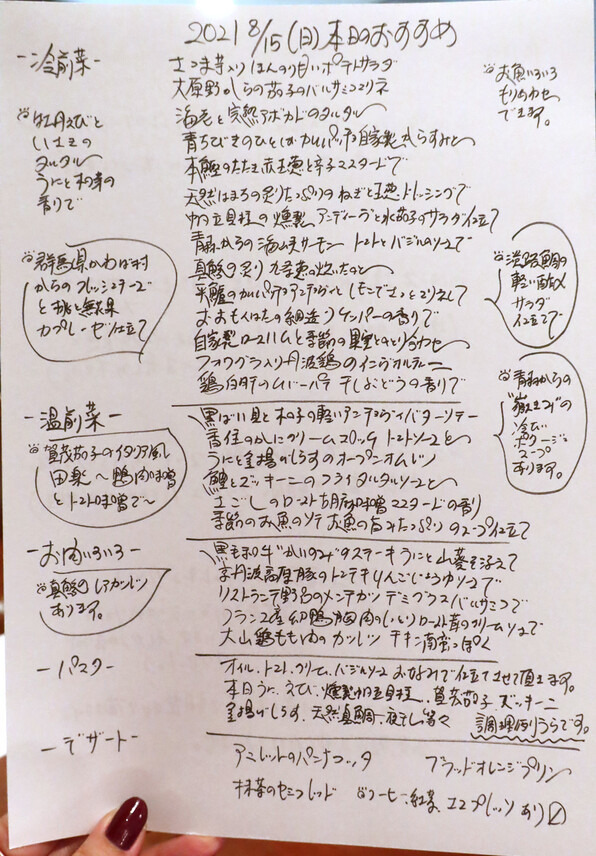 2021 8/15(日)本日のおすすめ
-冷前菜-
さつま芋入りほんのり甘いポテトサラダ
大原野からの茄子のバルサミコマリネ
海老と完熟アボカドのタルタル
青ちびきのひとしおカルパッチョ自家製からすみと
本鰹のたたき赤玉葱と辛子マスタードで
天然はまちの炙りたっぷりのねぎと玉葱ドレッシングで
帆立貝柱の燻製 アンディーブと水茄子のサラダ仕立て
青森からの海峡サーモン トマトとバジルのソースで
真鯵の炙り 九条葱の焼いたのと
平鱸のカルパッチョ
おおもんはたの細造り ケッパーの香りで
自家製ロースハムと季節の果実のとり合わせ
フォワグラ入り丹波鶏のインヴォルティーニ
鶏白肝のムースパテ 干しぶどうの香りで
牡丹えびと
いさきの
タルタル
うにと木の芽の
香りで
群馬県かわば村
からのフレッシュチーズ
と桃と無花果
カプレーゼ仕立て
お魚いろいろ
もりあわせ
できます。
淡路鯛の
軽い酢〆
サラダ
仕立てで
青森からの
"嶽きみ"の
冷たい
ポタージュ
スープ
あります。
-温前菜-
黒ばい貝と木の子の軽いアンチョヴィバターソテー
香住のかにクリームコロッケ トマトソースと
うにと釜揚げしらすのオープンオムレツ
鱧とズッキーニのフライ タルタルソースと
さごしのロースト 胡麻味噌マスタードの香り
季節のお魚のソテー お魚の旨みたっぷりのスープ仕立て
賀茂茄子のイタリア風
田楽〜鴨肉味噌
とトマト味噌で〜
-お肉いろいろ-
黒毛和牛"かいのみ"のステーキ うにと山葵を添えて
京丹波高原豚のトンテキ りんごしょうゆソースで
リストランテ野呂のメンチカツ デミグラスバルサミコで
フランス産幼鴨胸肉のしっとりロースト 茸のクリームソースで
大山鶏ももゆのカツレツ チキン南蛮っぽく
真鯵のレアカツレツ
あります。
-パスタ-
オイル、トマト、クリーム、バジルソース お好みで仕立てさせて頂きます。
本日うに、えび、燻製帆立貝柱、賀茂茄子 ズッキーニ
釜揚げしらす、天然真鯛、夜干し等々 調理例うらです。
-デザート-
アミレットのパンナコッタ ブラッドオレンジプリン
抹茶のセミフレッド コーヒー、紅茶、エスプレッソあり